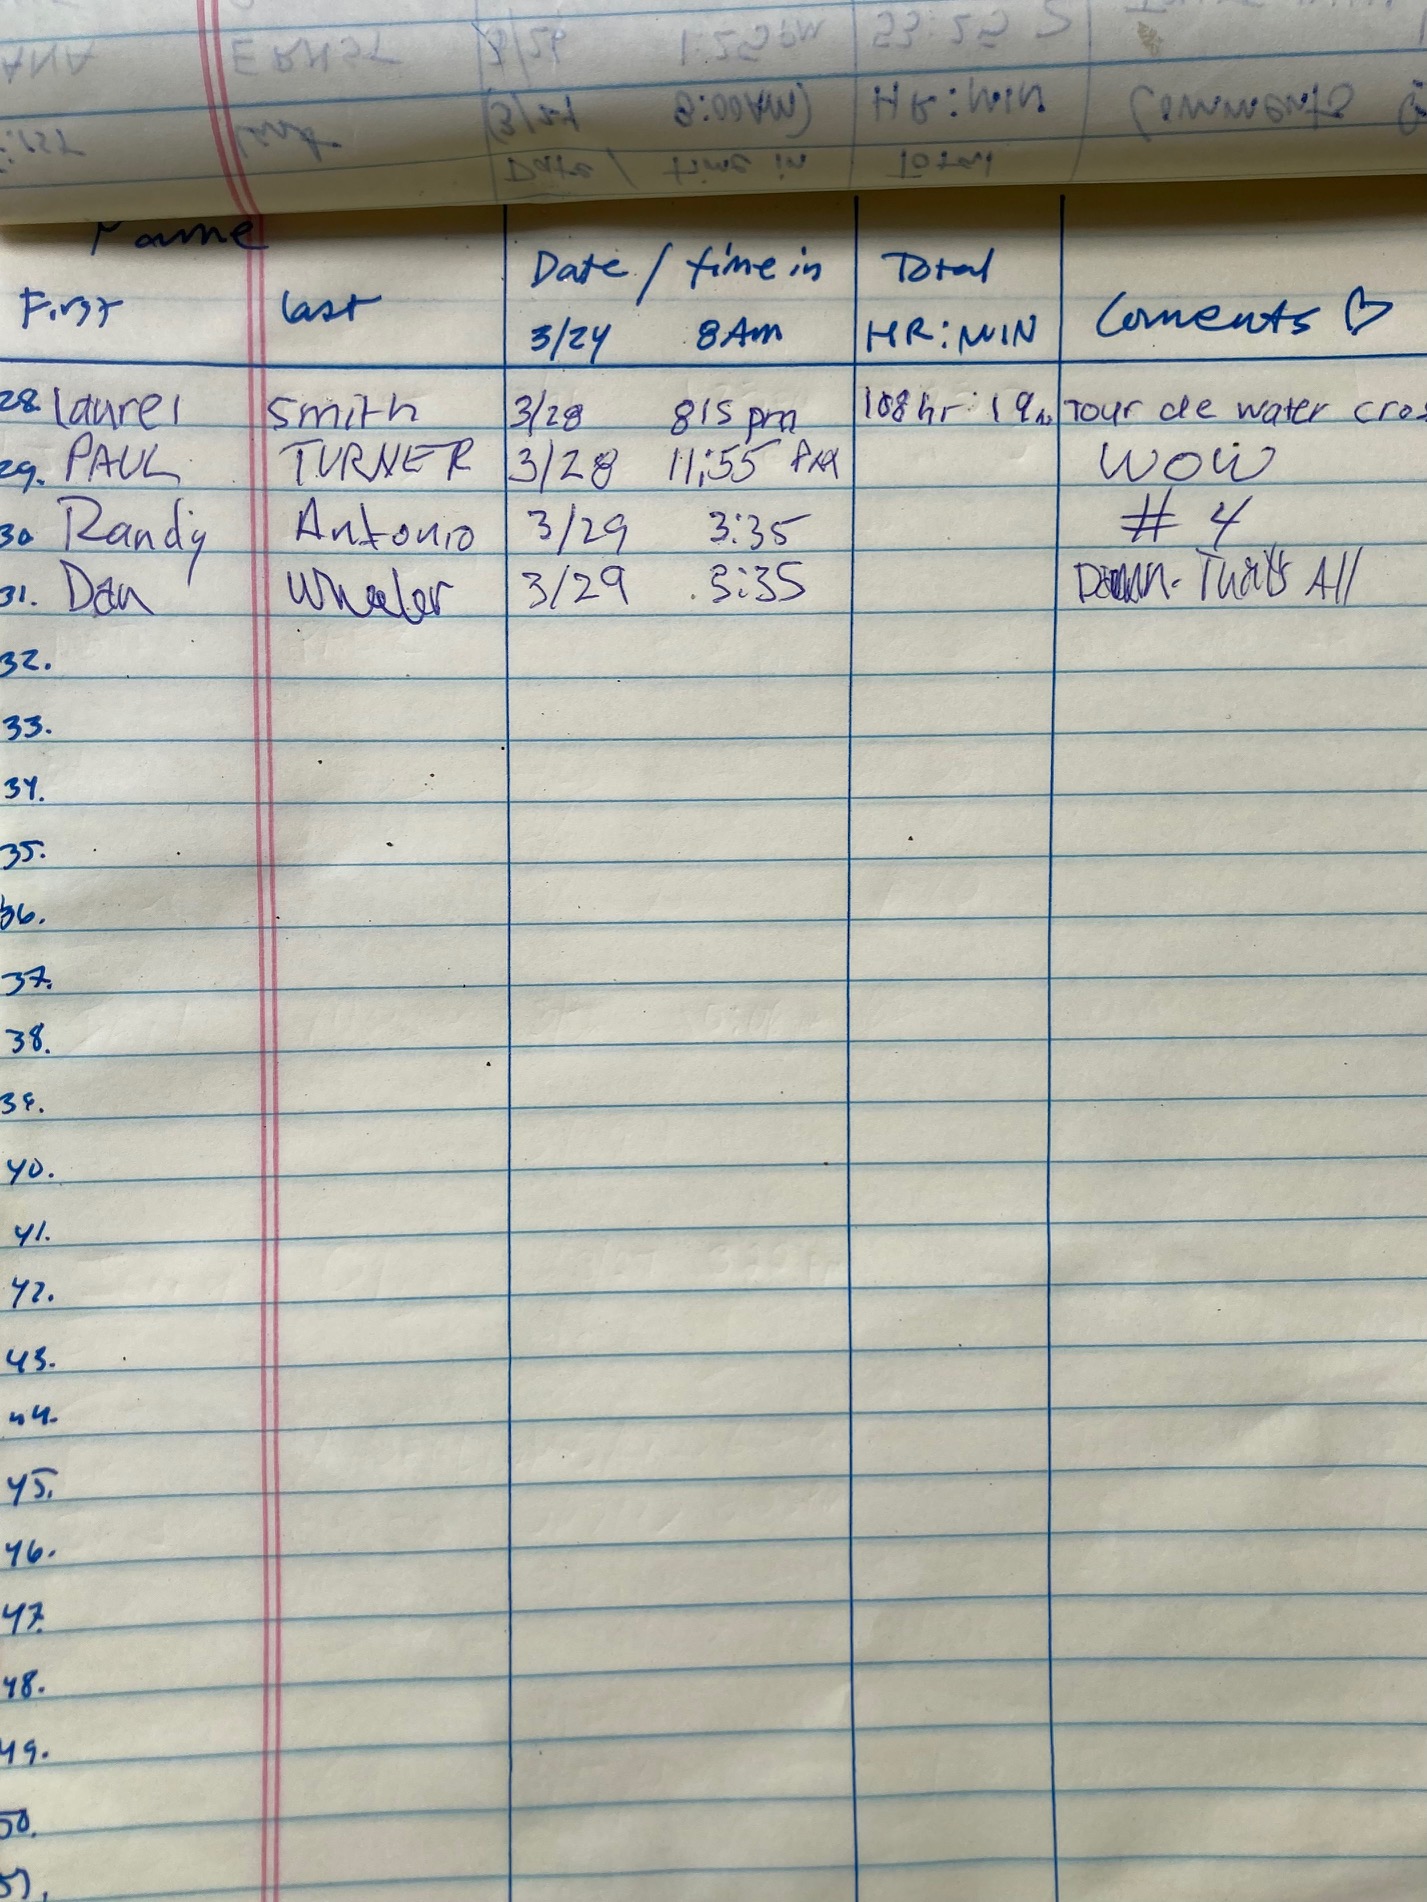 Name
Date / time in Total
First last 3/24 8Am HR:MIN Coments ♡
28. laurel smith 3/28 815 pm 108hr : 19m Tour de water cros
29. PAUL TURNER 3/28 11:55 PM WOW
30 Randy Antonio 3/29 3:35 # 4
31. Dan Wheeler 3/29 3:35 Damn. That's All
32.
33.
34.
35.
36.
37.
38.
39.
40.
41.
42.
43.
44.
45.
46.
47.
48.
49.
50.
51.